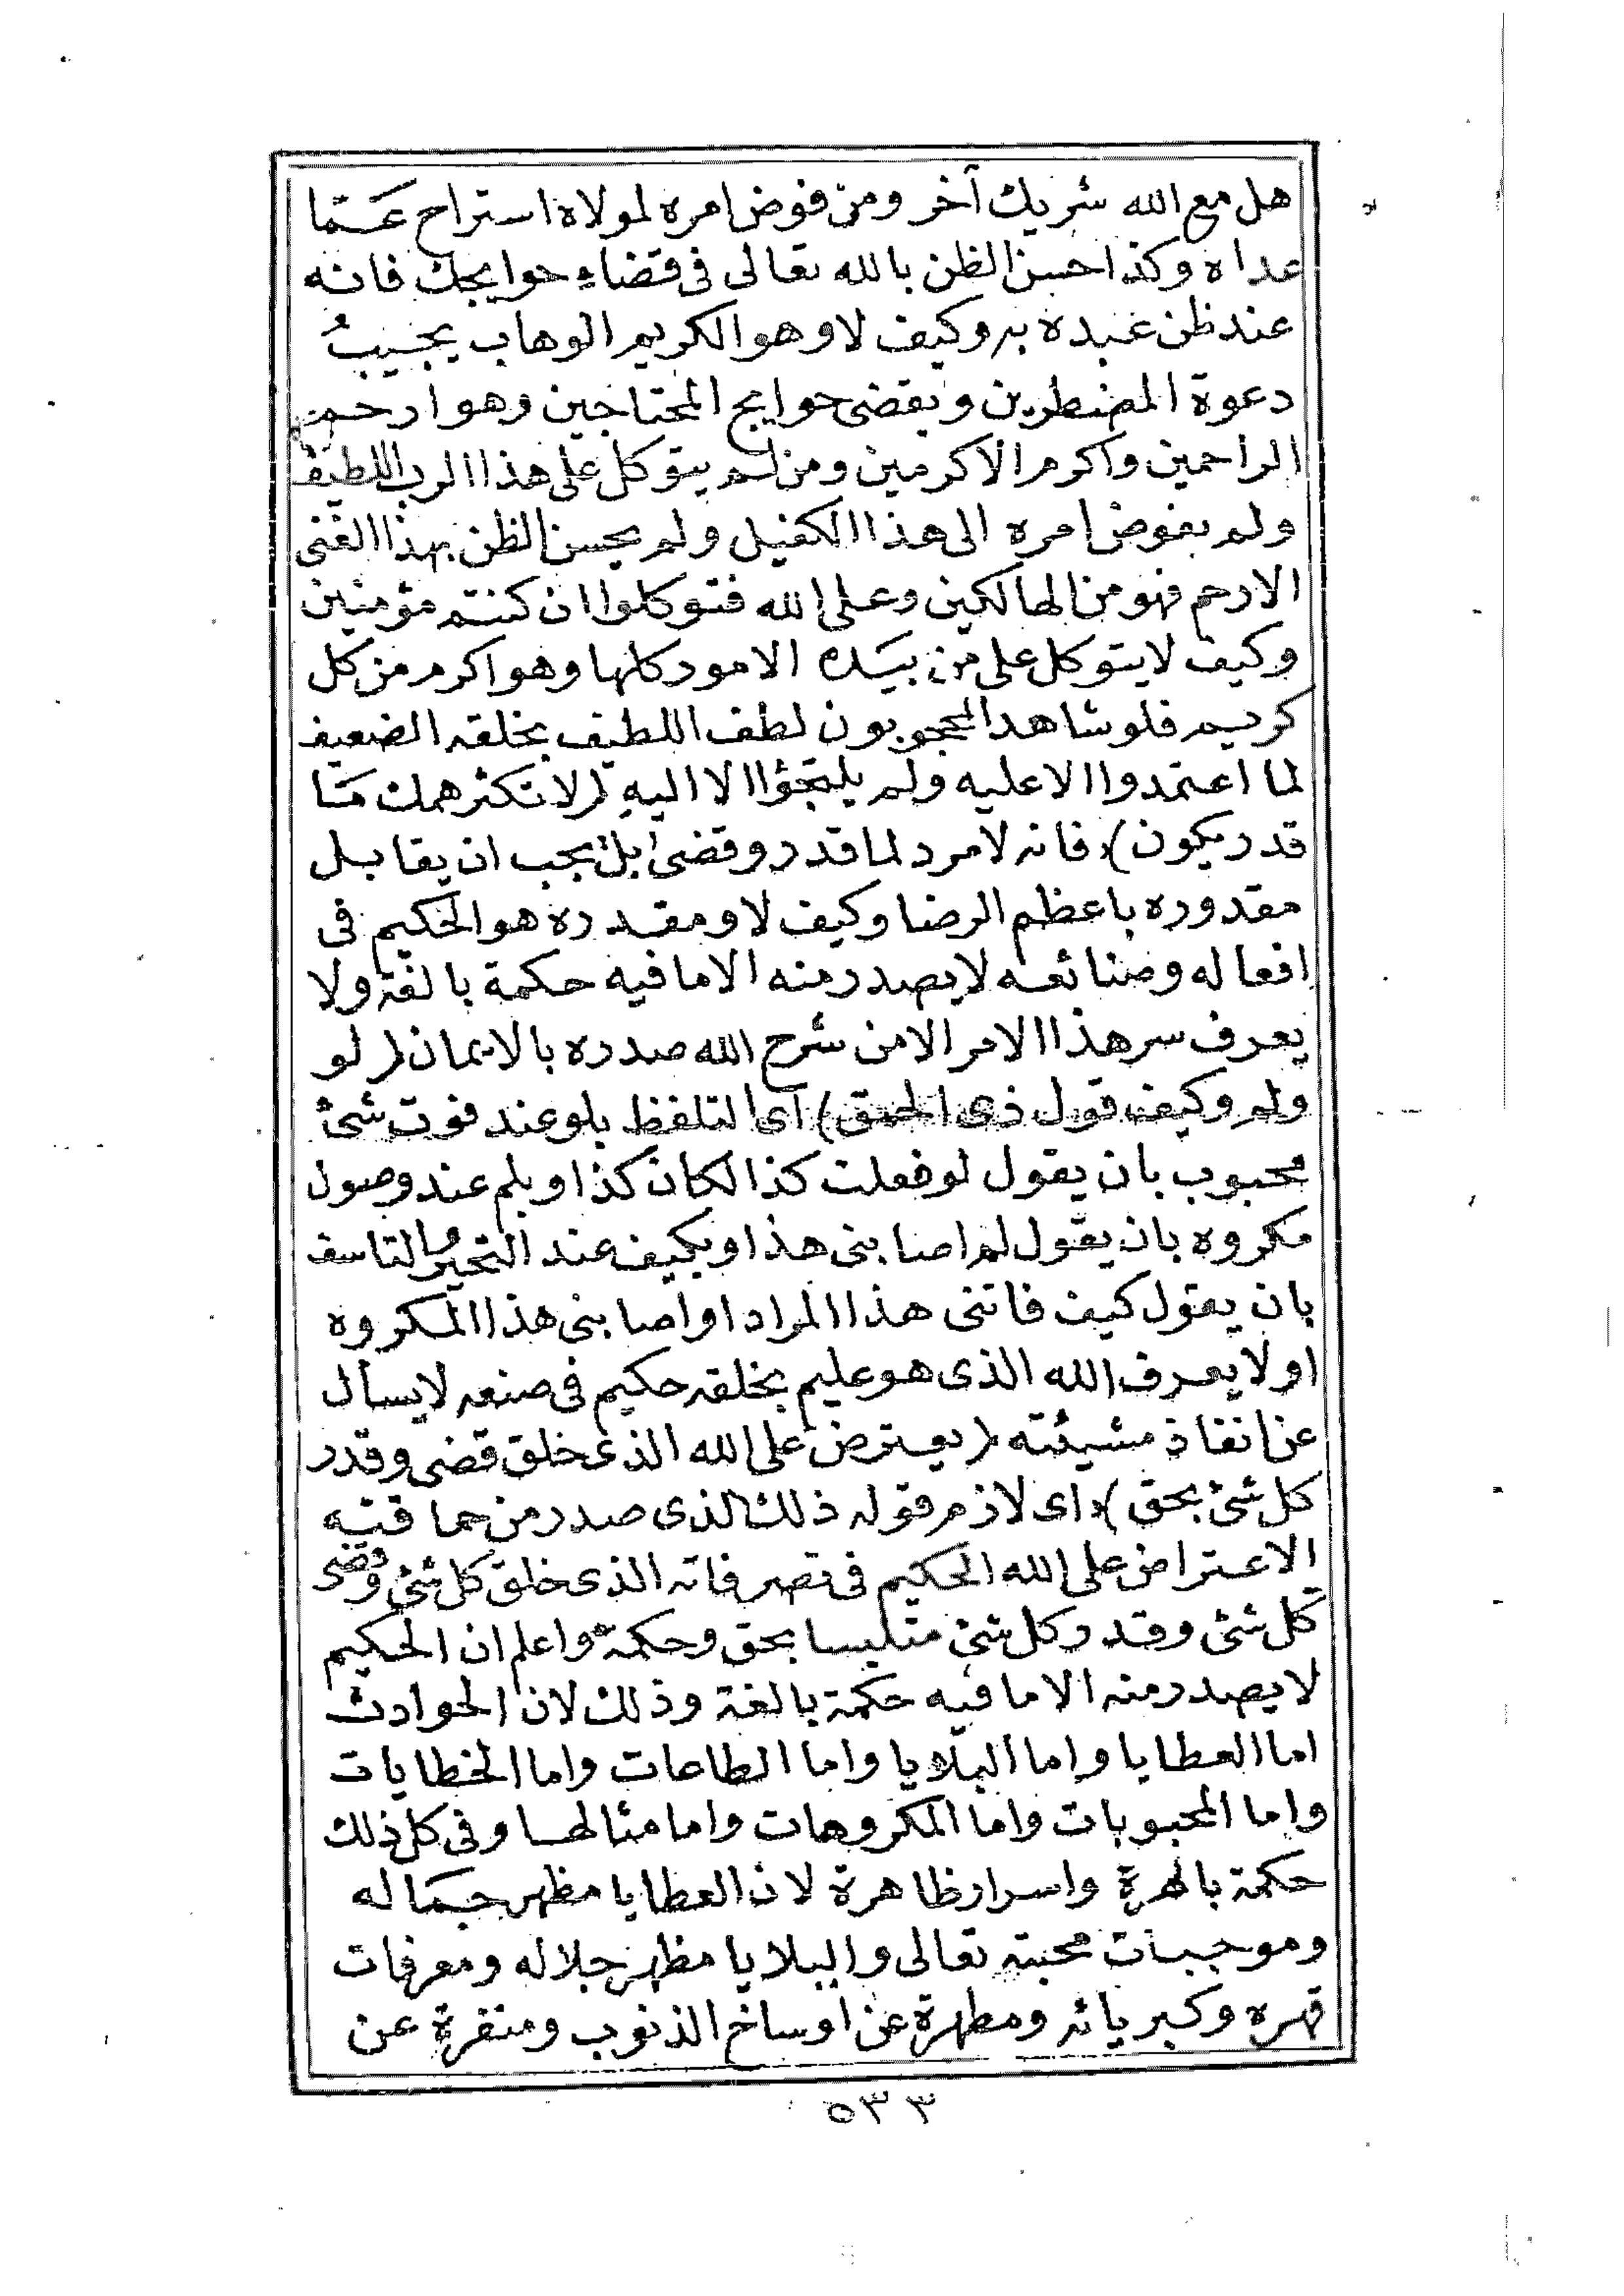 هل مع الله شريك آخر ومن فوض امره لمولاه استراح عَمّا
عداه وكذا حسن الظن بالله تعالى فى قضاء حوايجك فانه
عند ظن عبده به وكيف لا وهو الكريم الوهاب يجيبُ
دعوة المضطرين ويقضى حوايج المحتاجين وهو ارحم
الراحمين واكرم الاكرمين ومن لم يتوكل على هذا الرب اللطيف
ولم يفوض امره الى هذا الكفيل ولم يحسن الظن بهذا الغنى
الارحم فهو من الهالكين وعلى الله فتوكلوا ان كنتم مؤمنين
وكيف لا يتوكل على من بيَده الامور كلها وهو اكرم من كل
كريم فلو شاهد المحجوبون لطف اللطيف بخلقه الضعيف
لما اعتمدوا الا عليه ولم يلتجؤا الا اليه (لا تكثر همك مَا
قدر يكون) فانه لا مرد لما قدر وقضى بل يجب ان يقابل
مقدوره باعظم الرضا وكيف لا ومقدره هو الحكيم فى
افعاله وصنائعه لا يصدر منه الا ما فيه حكمة بالغة ولا
يعرف سر هذا الامر الا من شرح الله صدره بالايمان (لو
ولم وكيف قول ذى الحمق) اى التلفظ بلو عند فوت شئ
محبوب بان يقول لو فعلت كذا لكان كذا وبلم عند وصول
مكروه بان يقول لم اصابنى هذا وبكيف عند التحير والتاسف
بان يقول كيف فاتنى هذا المراد او اصابنى هذا المكروه
اولا يعرف الله الذى هو عليم بخلقه حكيم فى صنعه لا يسأل
عن انفاذ مشيئته (يعترض على الله الذى خلق قضى وقدر
كل شئ بحق) اى لازم قوله ذلك الذى صدر من حماقته
الاعتراض على الله الحكيم فى تصرفاته الذى خلق كل شئ وقضى
كل شئ وقدر كل شئ متلبسا بحق وحكمة واعلم ان الحكيم
لا يصدر منه الا ما فيه حكمة بالغة وذلك لان الحوادث
اما العطايا واما البلايا واما الطاعات واما الخطايات
واما المحبوبات واما المكروهات واما مثالها وفى كل ذلك
حكمة باهرة واسرار ظاهرة لان العطايا مظهر جَمَاله
وموجبات محبته تعالى والبلايا مظهر جلاله ومعرفات
قهره وكبريائه ومطهرة عن اوساخ الذنوب ومنفرة عن
٥٣٣